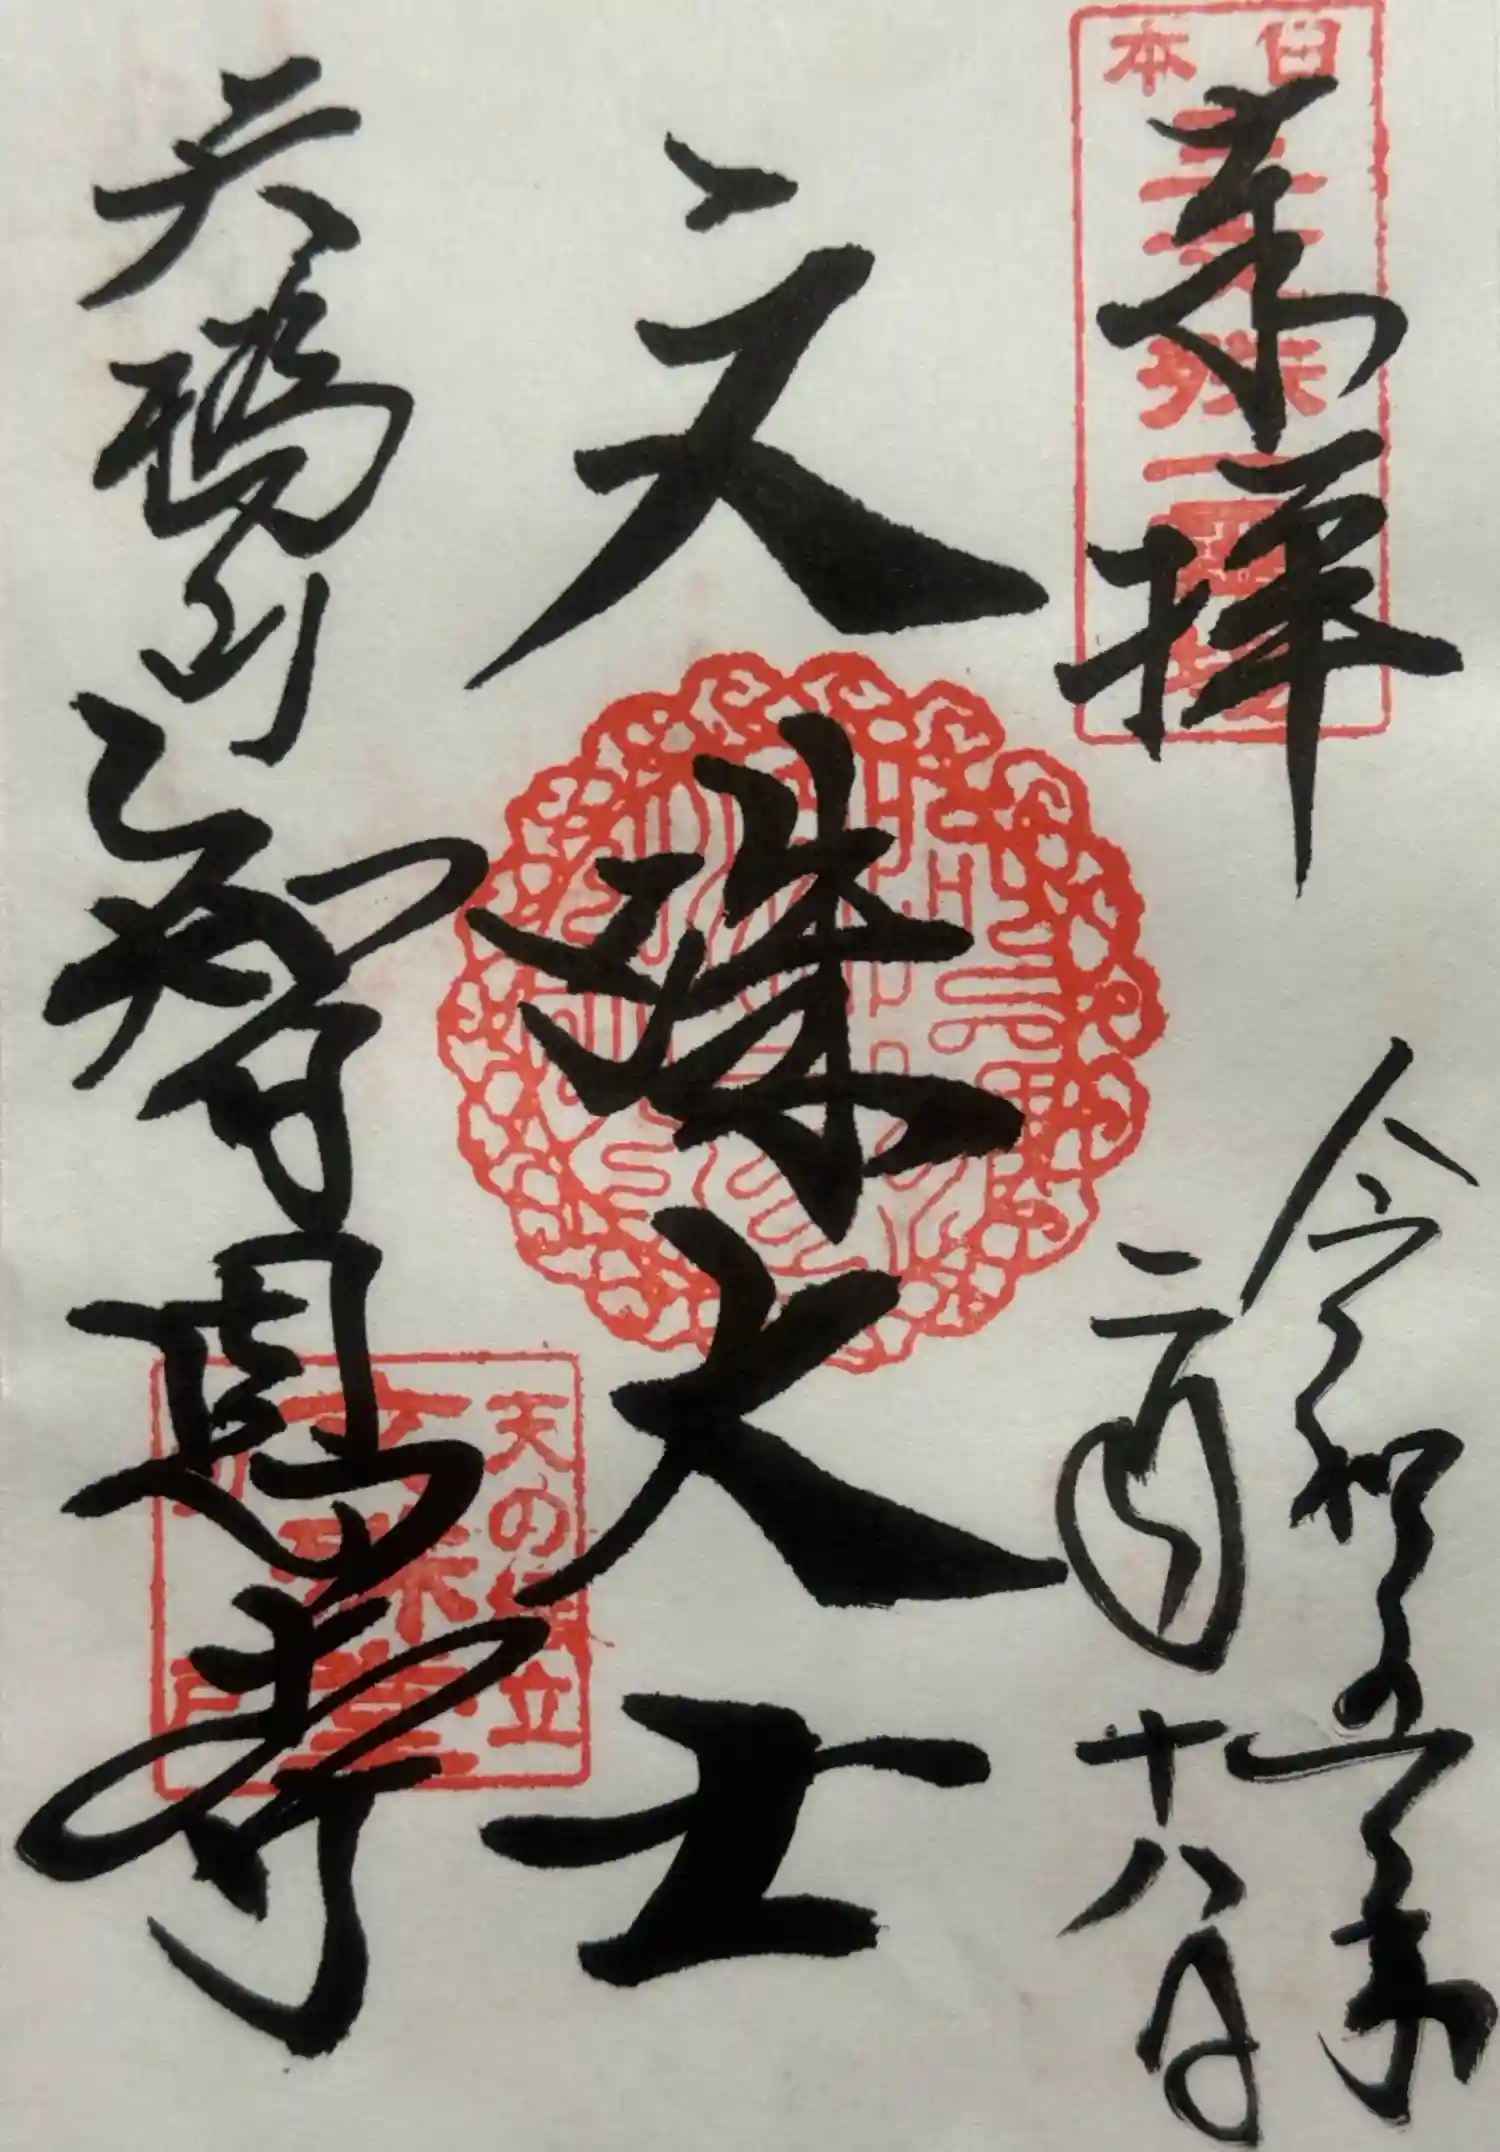 来拝
日本三文殊一霊場
令和五年
二月十八日
文殊大士
天橋山
智恩寺
天の橋立
文殊堂